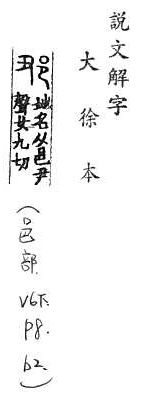 說文解字
大徐本
地名从邑丑
聲女九切
（邑部. V6下. P8. b2.）